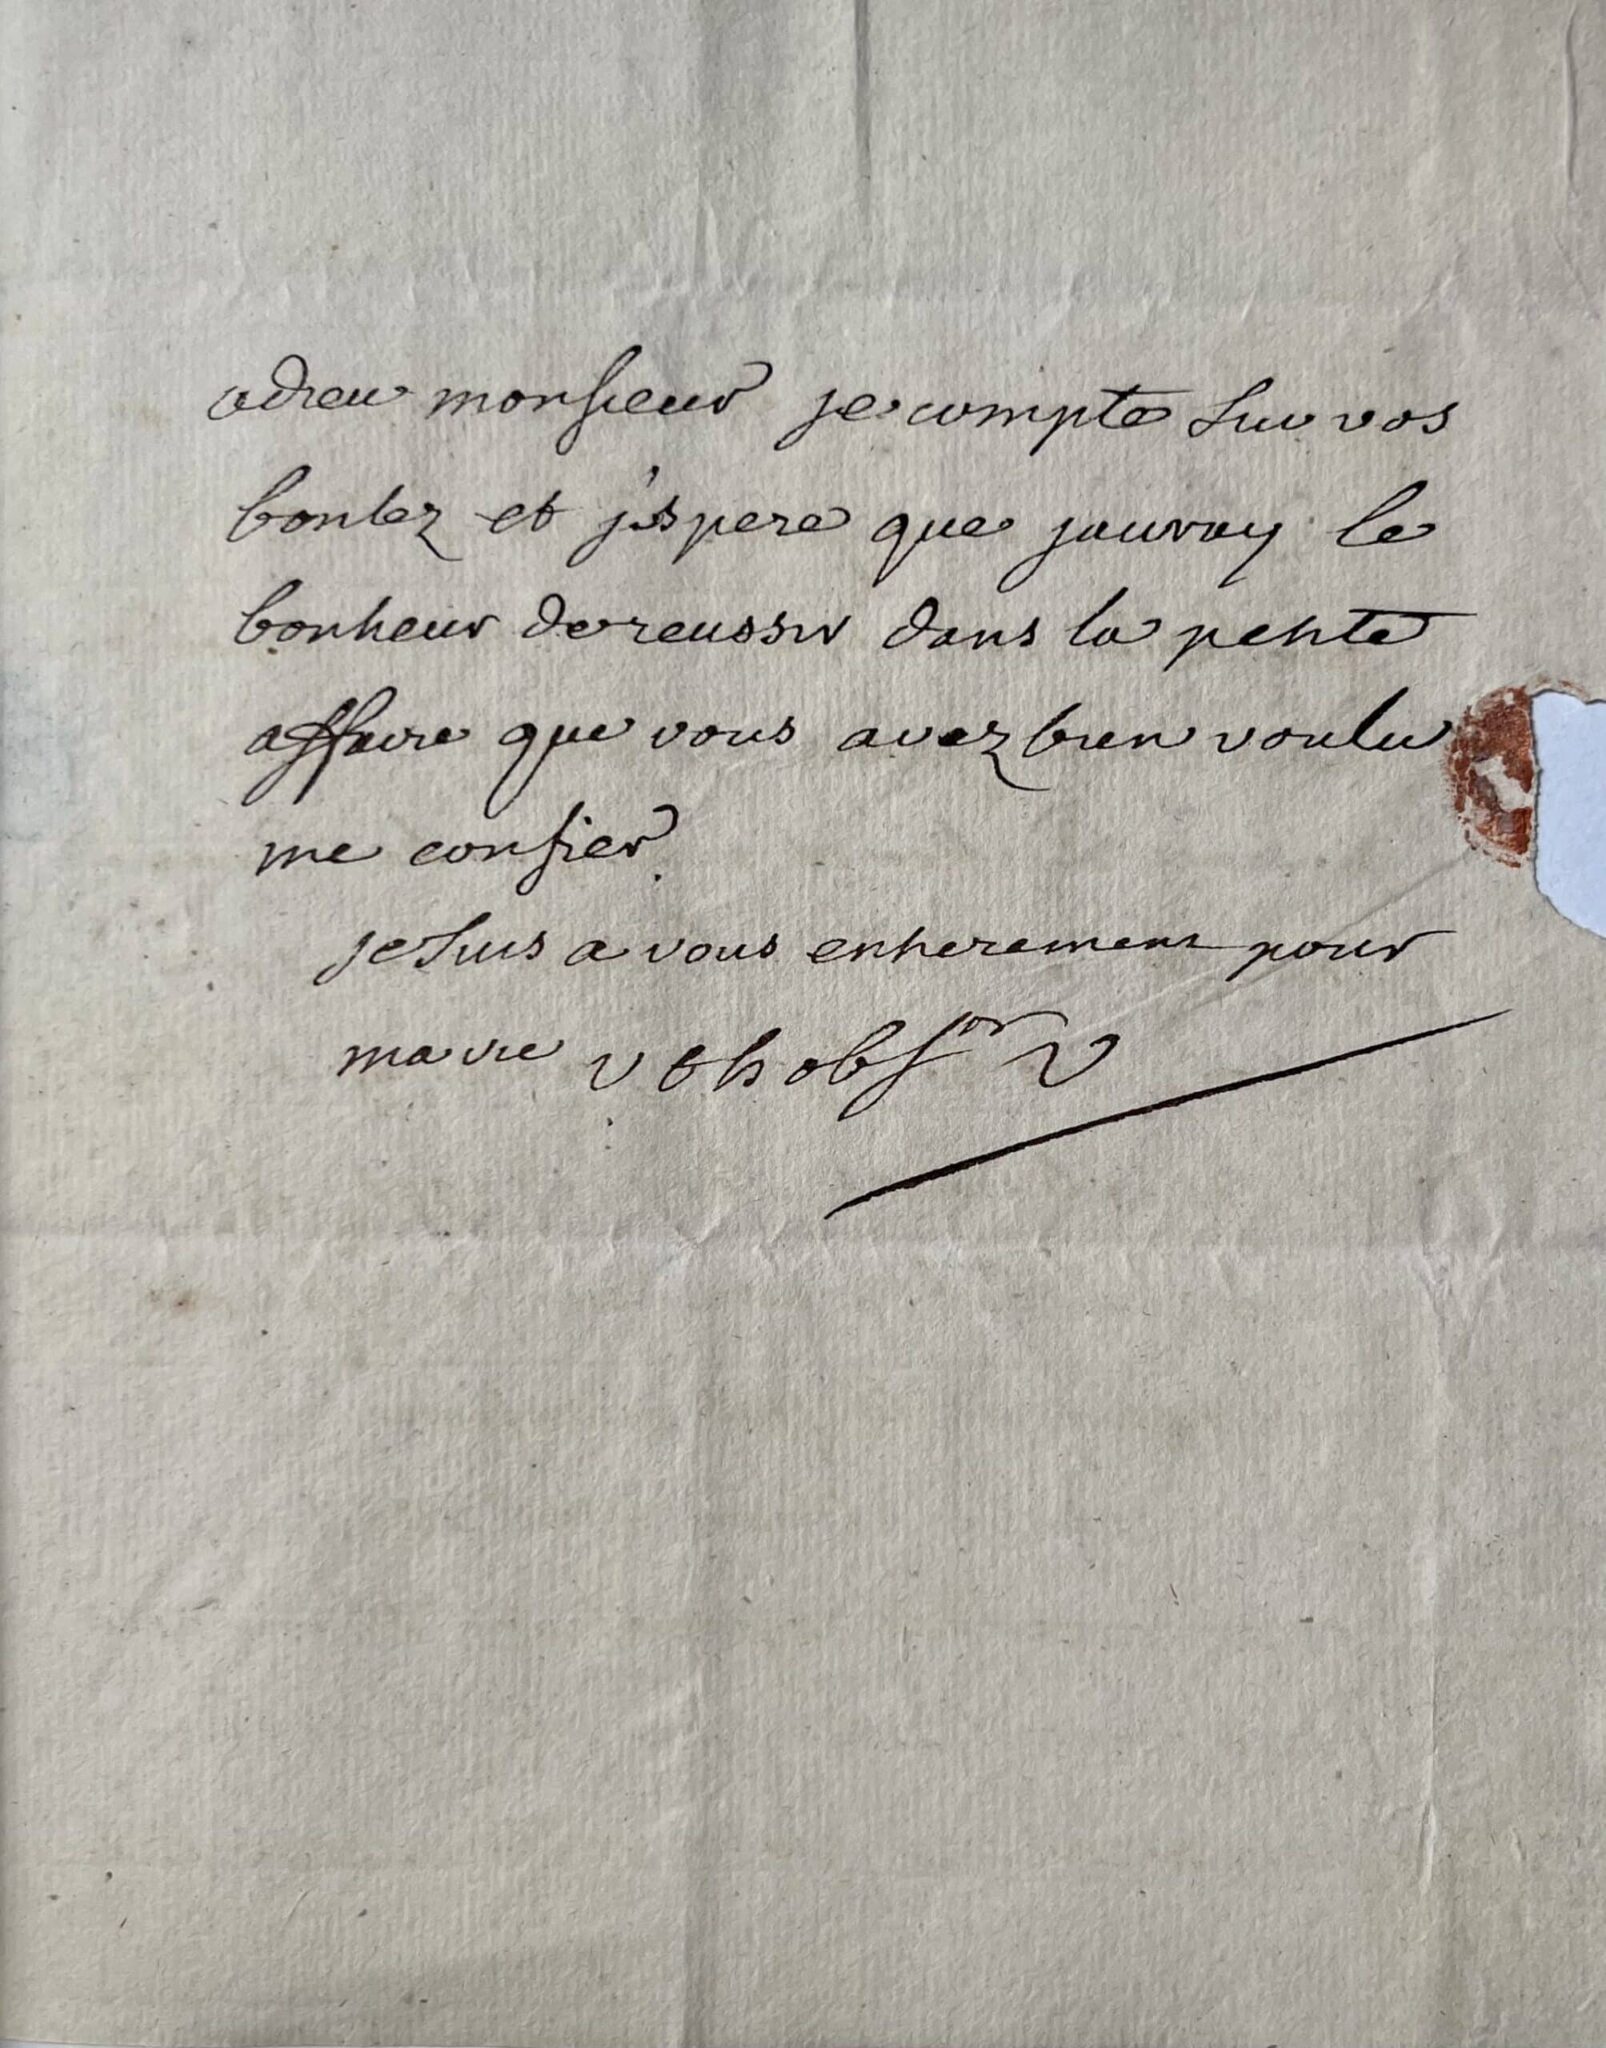 adieu monsieur je compte sur vos
bontez et j'espere que jauray le
bonheur de reussir dans la petite
affaire que vous avez bien voulu
me confier.
je suis a vous entierement pour
ma vie v t h ob s^or V